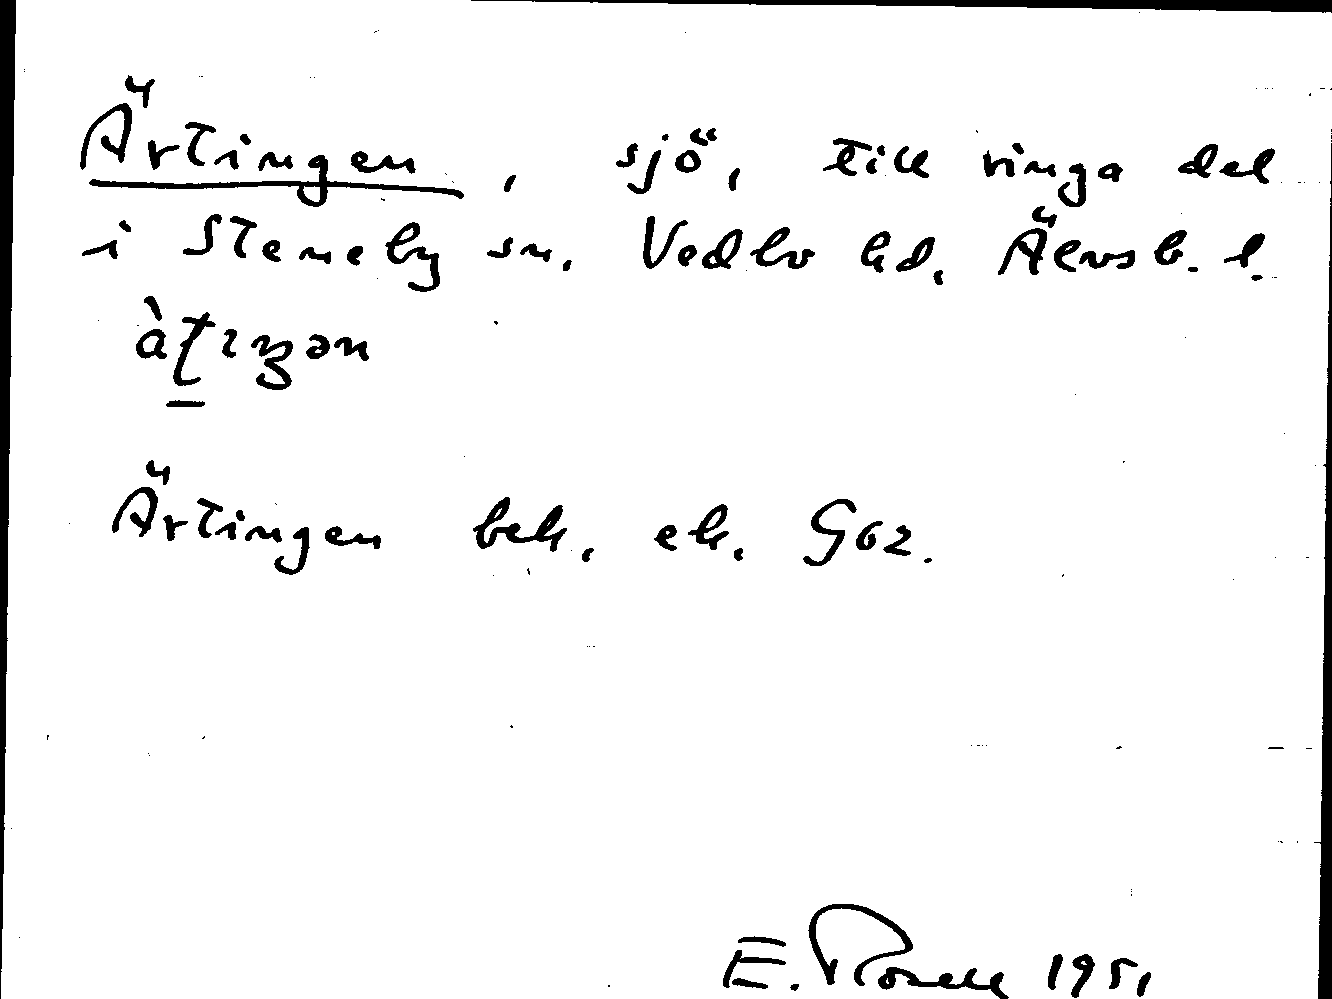 Ärtingen, sjö, till ringa del
i Steneby sn. Vedbo hd. Älvsb. l.
Ärtingen bek. ek. G62.
E. Rosell 1951